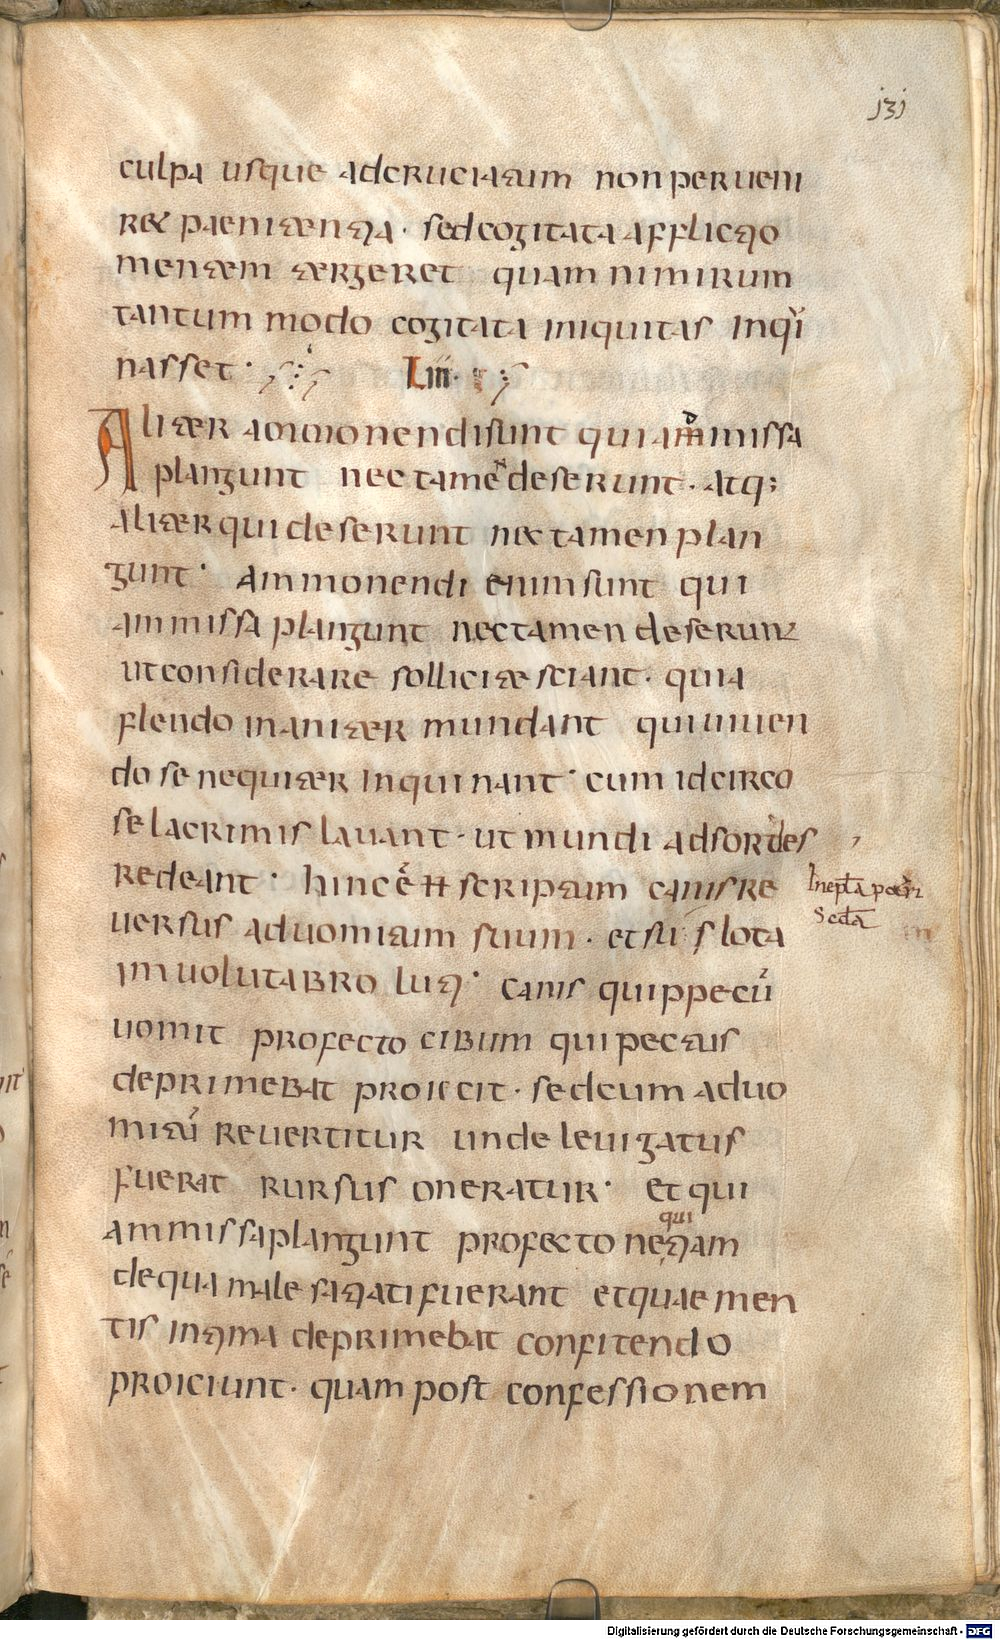 131
culpa usque adcruciatum nonperueni
ret paenitentia· sedcogitata afflictio
mentem tergeret quam nimirum
tantum modo cogitata iniquitas inqui
nasset·
Liii·
Aliter ammonendisunt qui ammissa
plangunt nec tamen deserunt· atq;
aliter qui deserunt nec tamen plan
gunt· ammonendi enim sunt qui
ammissa plangunt nec tamen deserunt
ut considerare sollicite sciant· quia
flendo inaniter mundant qui uiuen
do se nequiter inquinant· cum idcirco
se lacrimis lauant· ut mundi adsordes
redeant· hinc ē scriptum canis re
uersus aduomitum suum· et sus lota
in uolutabro luti· canis quippe cū
uomit profecto cibum qui pectus
deprimebat proiecit· sed cum aduo
mitū reuertitur unde leuigatus
fuerat rursus oneratur· et qui
ammissa plangunt profecto nequitiam
de qua male satiati fuerant et quae men
tis intima deprimebat confitendo
proiciunt· quam post confessionem